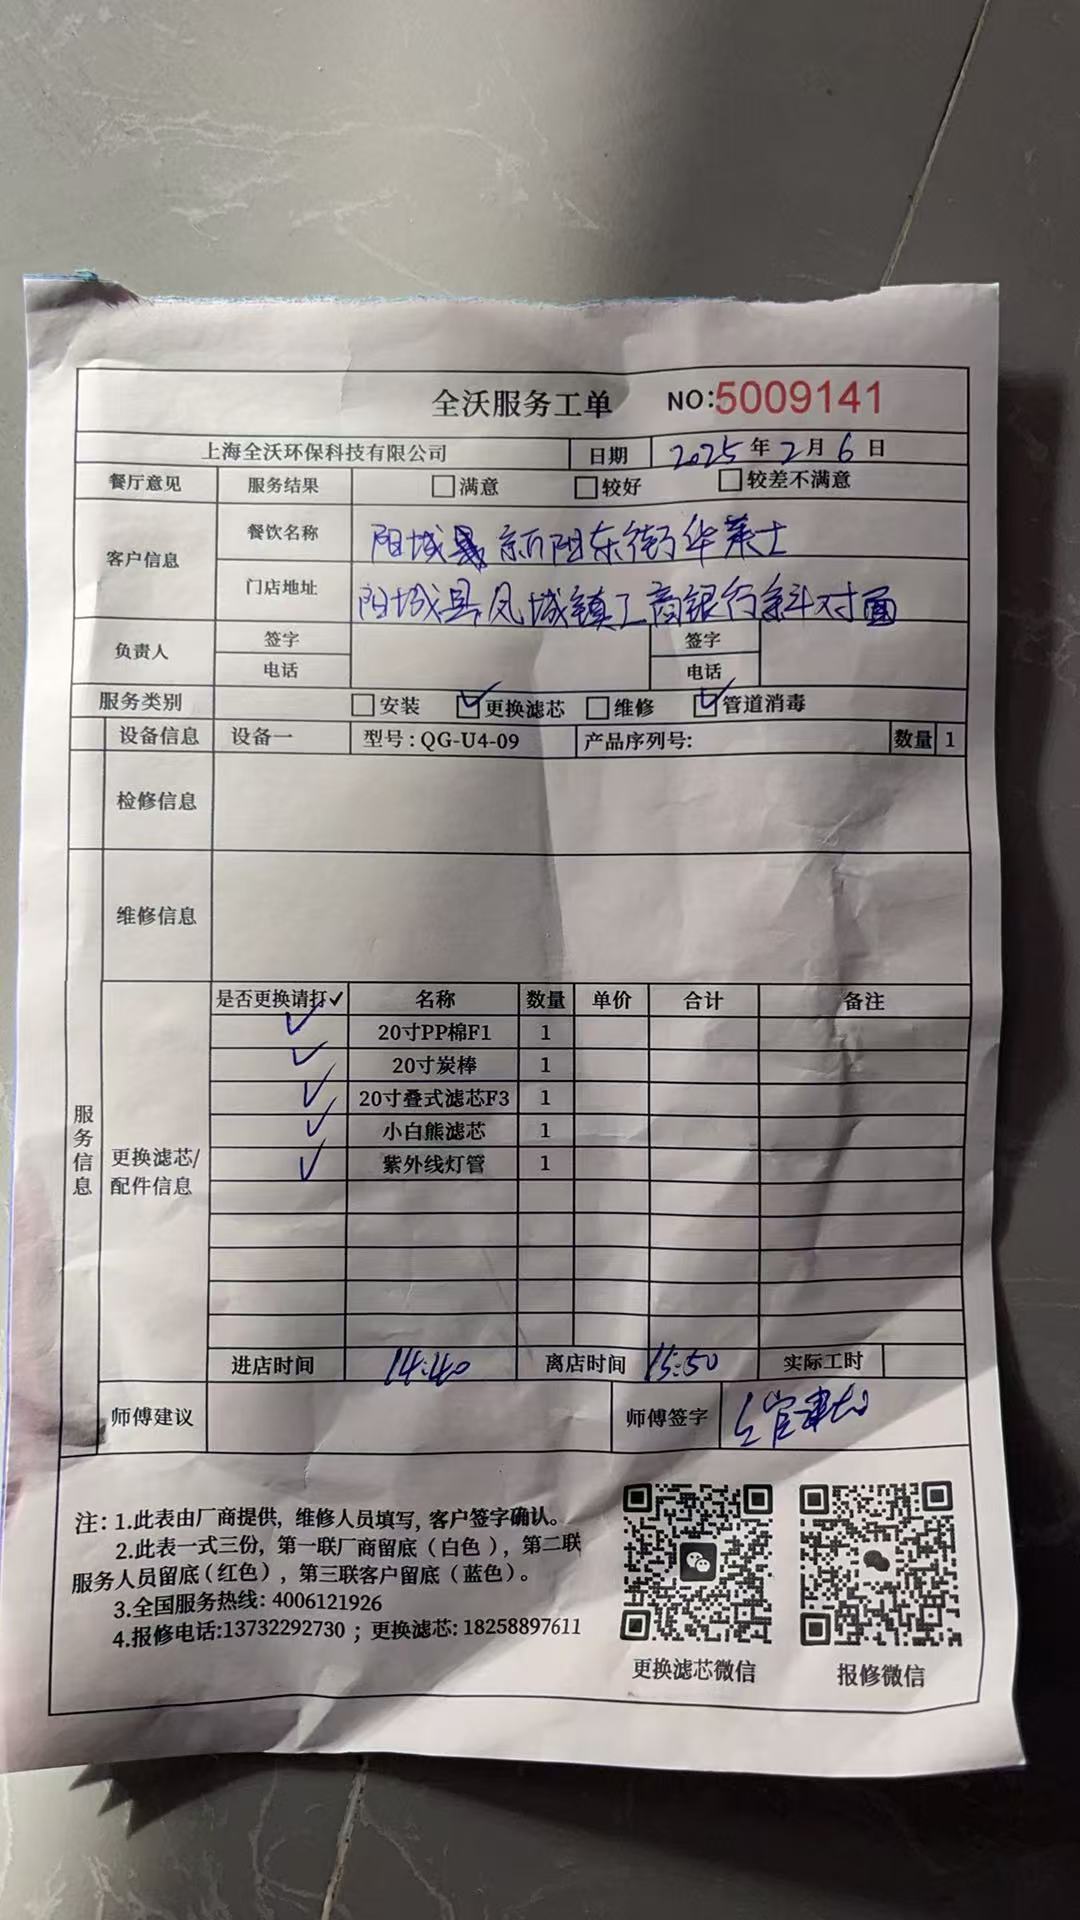 全沃服务工单 NO:5009141
上海全沃环保科技有限公司 日期 2025年2月6日
餐厅意见 服务结果 满意 较好 较差不满意
客户信息 餐饮名称 阳城县新阳东街华莱士
门店地址 阳城县凤城镇工商银行斜对面
负责人 签字 签字
电话 电话
服务类别 安装 ✓更换滤芯 维修 ✓管道消毒
设备信息 设备一 型号:QG-U4-09 产品序列号: 数量 1
检修信息
维修信息
服务信息
更换滤芯/配件信息
是否更换请打✓ 名称 数量 单价 合计 备注
✓ 20寸PP棉F1 1
✓ 20寸炭棒 1
✓ 20寸叠式滤芯F3 1
✓ 小白熊滤芯 1
✓ 紫外线灯管 1
进店时间 14:40 离店时间 15:50 实际工时
师傅建议 师傅签字
注: 1.此表由厂商提供, 维修人员填写, 客户签字确认。
2.此表一式三份, 第一联厂商留底(白色), 第二联
服务人员留底(红色), 第三联客户留底(蓝色)。
3.全国服务热线: 4006121926
4.报修电话:13732292730 ; 更换滤芯: 18258897611
更换滤芯微信 报修微信